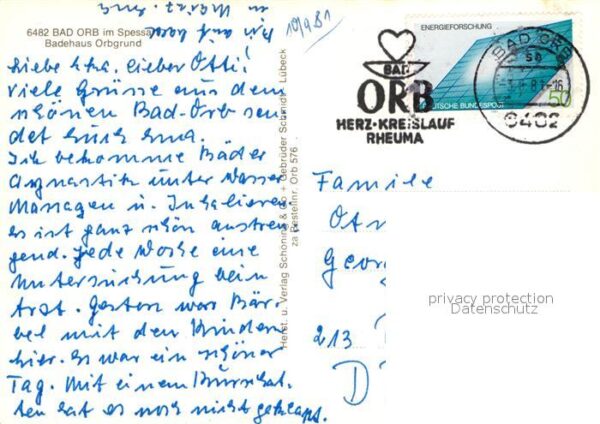 6482 BAD ORB im Spessa
Badehaus Orbgrund
10/9 81
Liebe Erna, lieber Otti!
viele Grüsse aus dem
schönen Bad-Orb sen-
det Euch Erna.
Ich bekomme Bäder
Gymnastik unter Wasser
Massagen u. Inhalieren
es ist ganz schön anstren
gend. jede Woche eine
Untersuchung beim
Arzt. Gestern war Bär-
bel mit den Kindern
hier. Es war ein schöner
Tag. Mit einem Kurschat-
ten hat es noch nicht geklappt.
Herst. u. Verlag Schöning & Co + Gebrüder Schmidt, Lübeck
za Bestellnr. Orb 576
BAD
ORB
HERZ-KREISLAUF
RHEUMA
ENERGIEFORSCHUNG
DEUTSCHE BUNDESPOST
50
BAD ORB
6482
Familie
Ot
Geor
213
D
privacy protection
Datenschutz